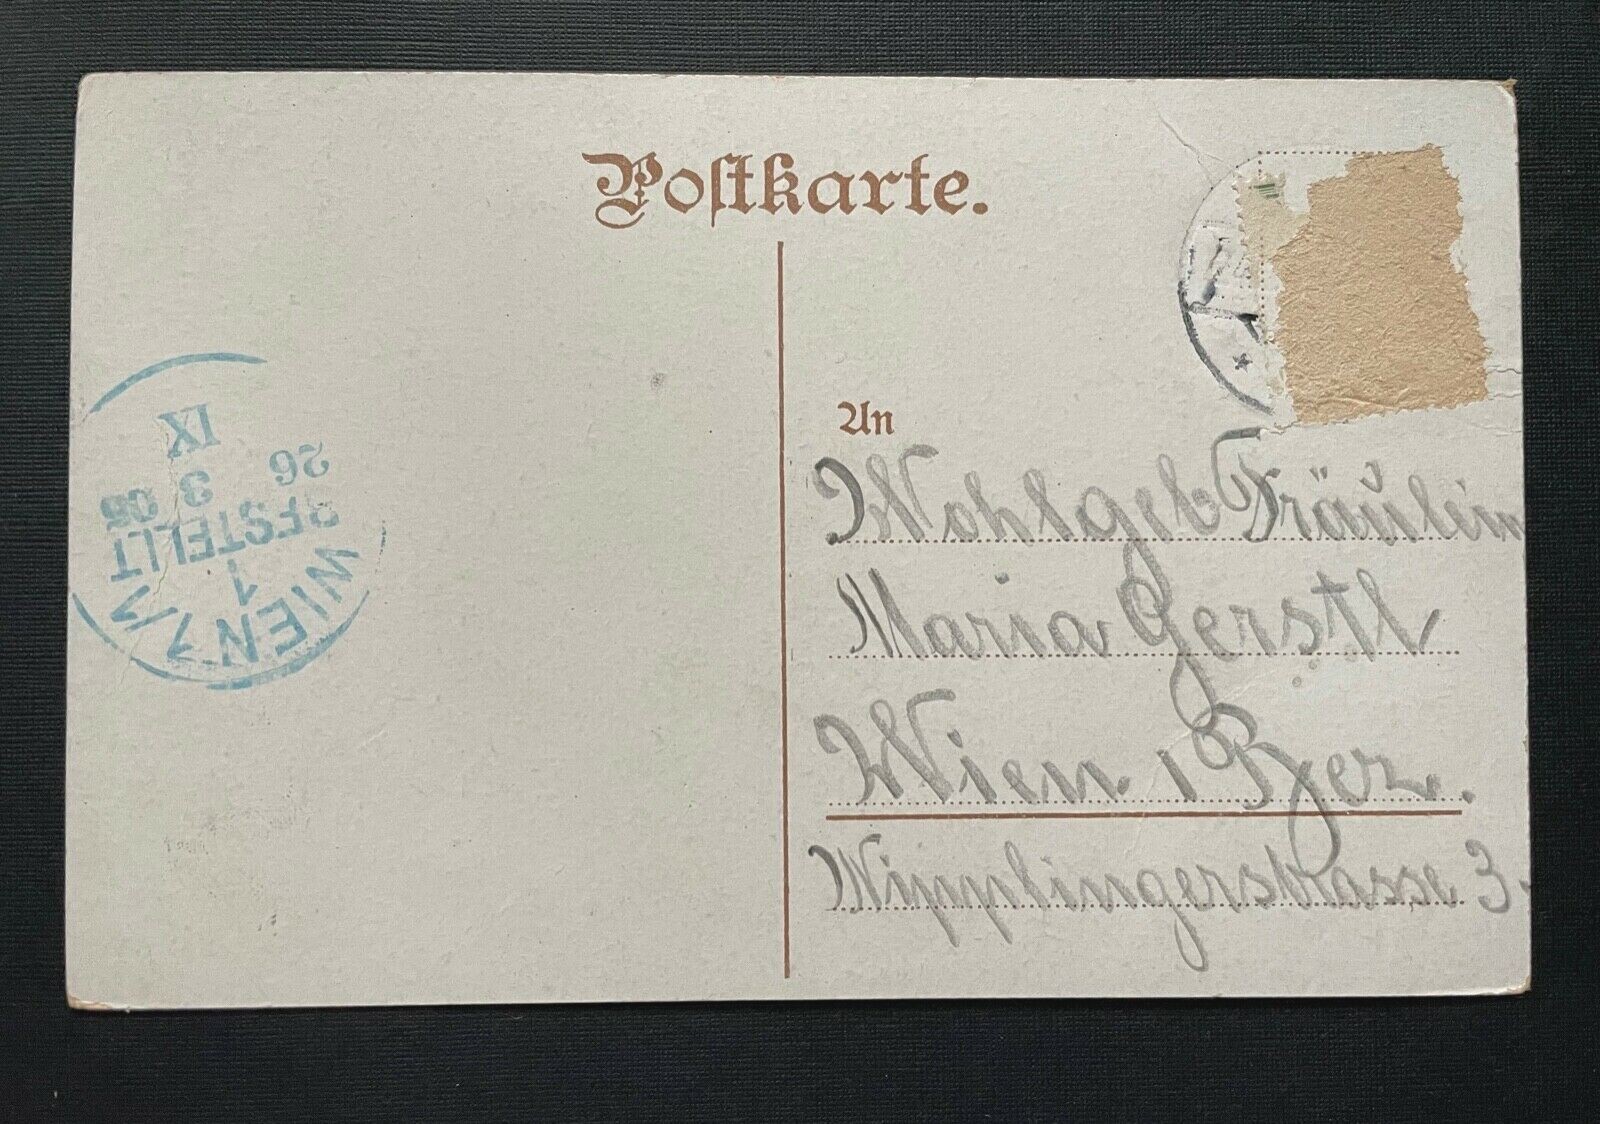 Postkarte.
An
Wohlgeb Fräulein
Maria Gerstl
Wien. 1 Bez.
Wipplingerstrasse 3.
WIEN 1/1
1
BESTELLT
26 3 05
IX